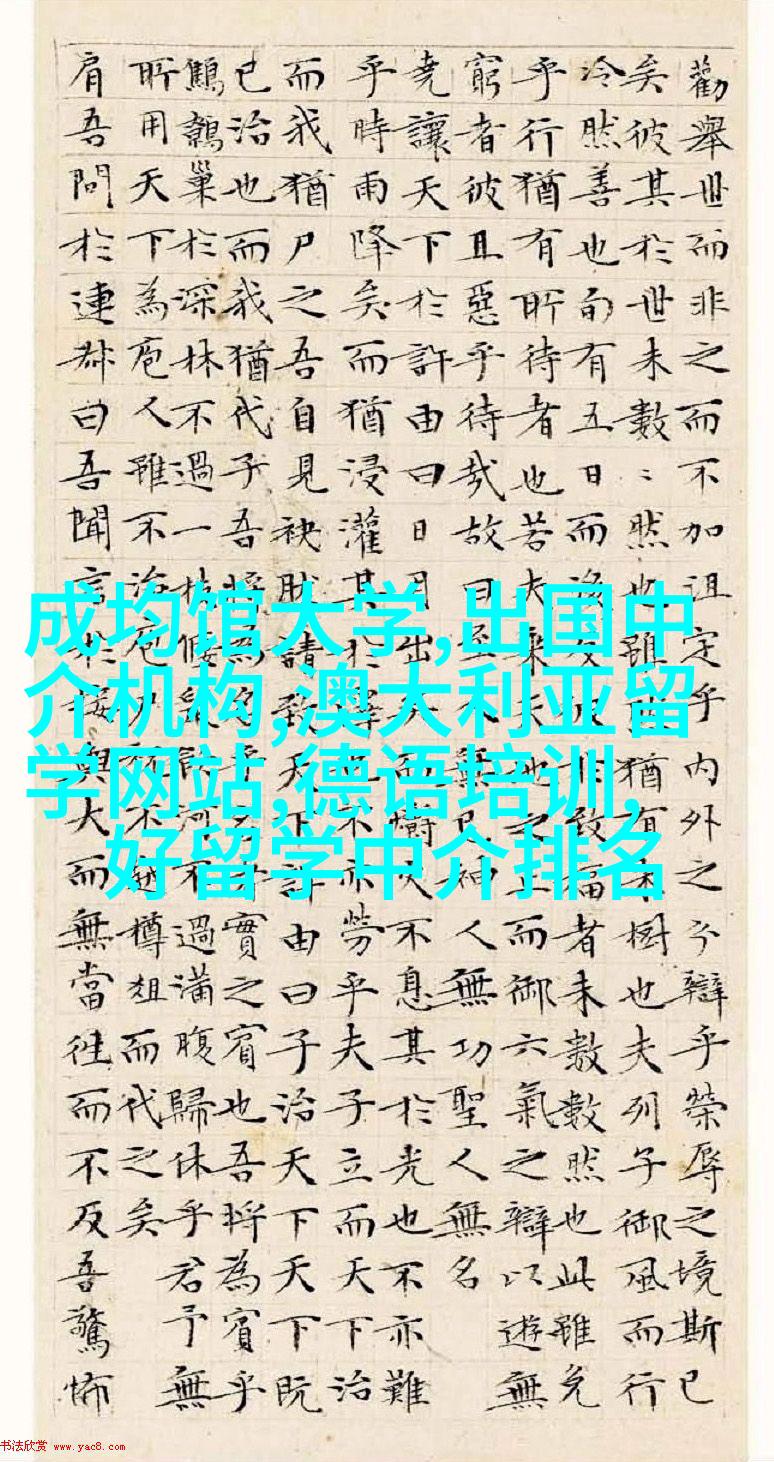 勸舉世而非之而不加沮定乎內外之分辯乎榮辱之境斯已
矣彼其於世未數〻然也雖然猶有未樹也夫列子御風而行
冷然善也旬有五日〻而後反彼於致福者未數數然也此雖免
乎行猶有所待者也若夫乘天地之正而御六氣之辯以遊無
窮者彼且惡乎待哉故曰至人無己神人無功聖人無名
堯讓天下於許由曰日月出矣而爝火不息其於光也不亦難
乎時雨降矣而猶浸灌其於澤也不亦勞乎夫子立而天下治
而我猶尸之吾自見缺然請致天下許由曰子治天下天下既
已治也而我猶代子吾將為名乎名者實之賓也吾將為賓乎
鷦鷯巢於深林不過一枝偃鼠飲河不過滿腹歸休乎君予無
所用天下為庖人雖不治庖尸祝不越樽俎而代之矣
肩吾問於連叔曰吾聞言於接輿大而無當往而不反吾驚怖
成均馆大学,出国中
介机构,澳大利亚留
学网站,德语培训,
好留学中介排名
书法欣赏 www.yac8.com